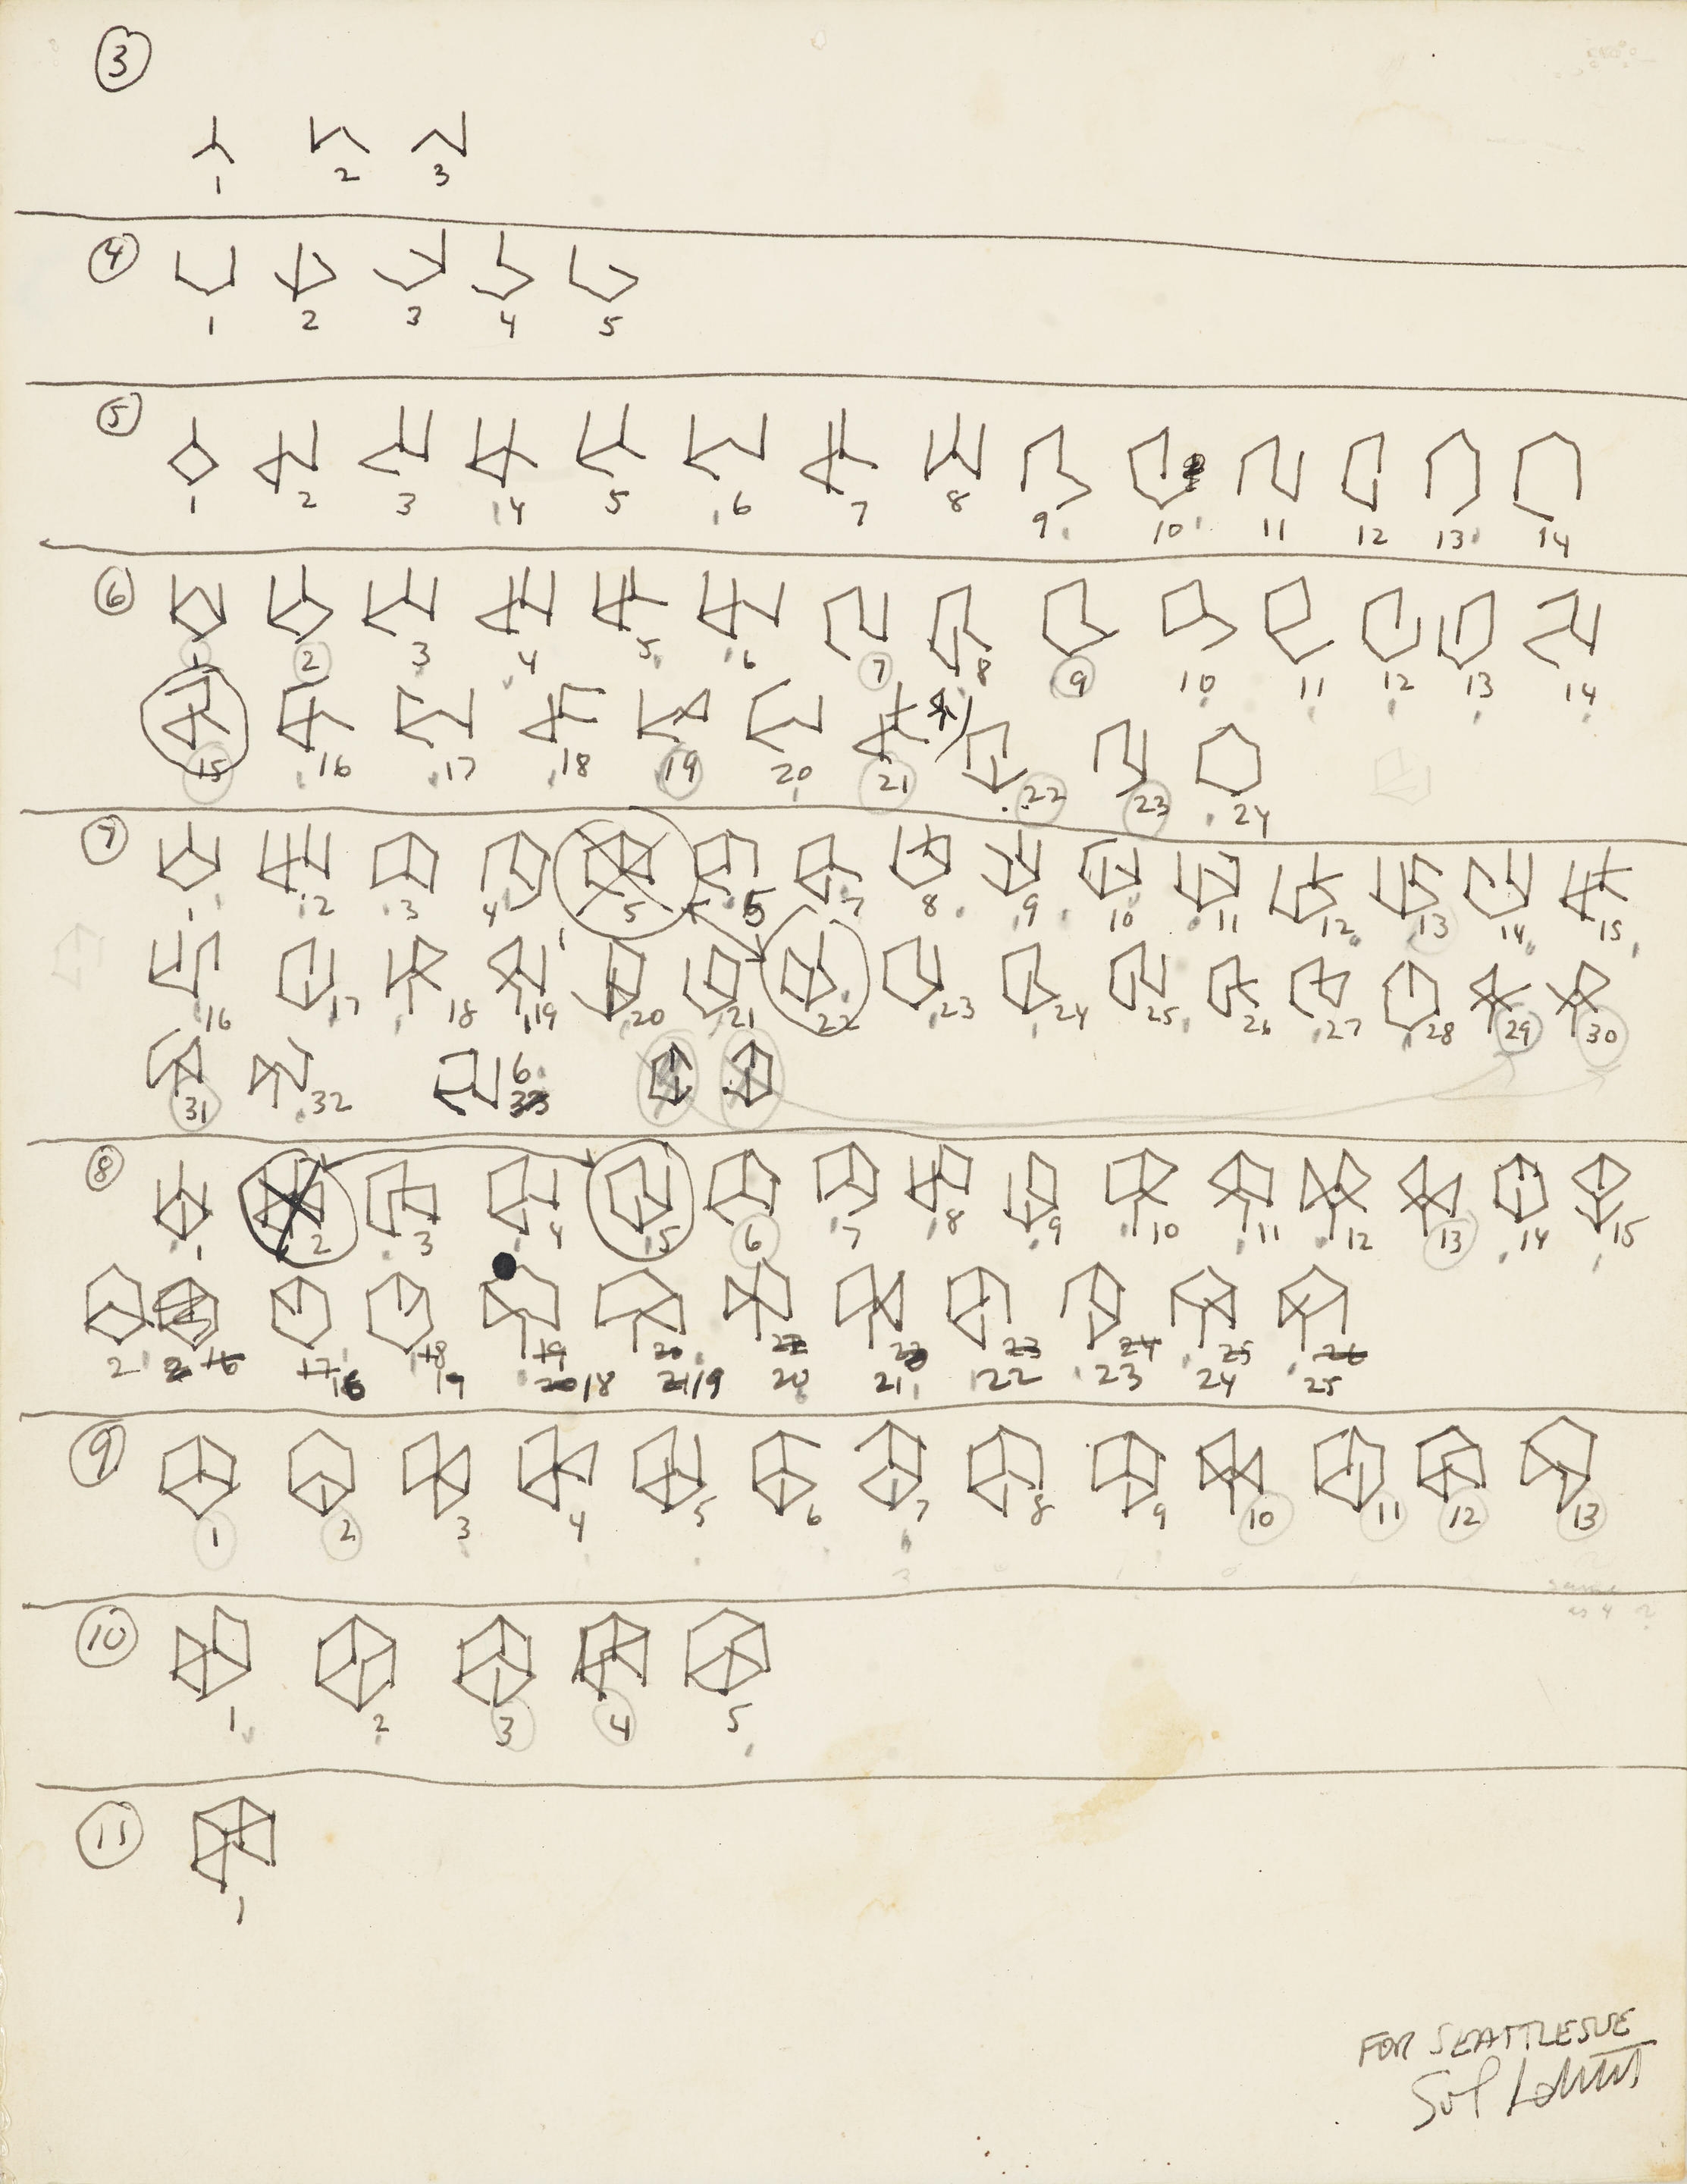 3
1 2 3
4
1 2 3 4 5
5
1 2 3 4 5 6 7 8 9 10 11 12 13 14
6
1 2 3 4 5 6 7 8 9 10 11 12 13 14
15 16 17 18 19 20 21 22 23 24
7
1 2 3 4 5 5 7 8 9 10 11 12 13 14 15
16 17 18 19 20 21 22 23 24 25 26 27 28 29 30
31 32 6 33
8
1 2 3 4 5 6 7 8 9 10 11 12 13 14 15
2 2 16 17 18 19 20 22 23 23 24 25 26
16 19 20 18 21 19 20 21 22 23 24 25
9
1 2 3 4 5 6 7 8 9 10 11 12 13
same
as 4 ?
10
1 2 3 4 5
11
1
FOR SEATTLESUE
Sol LeWitt